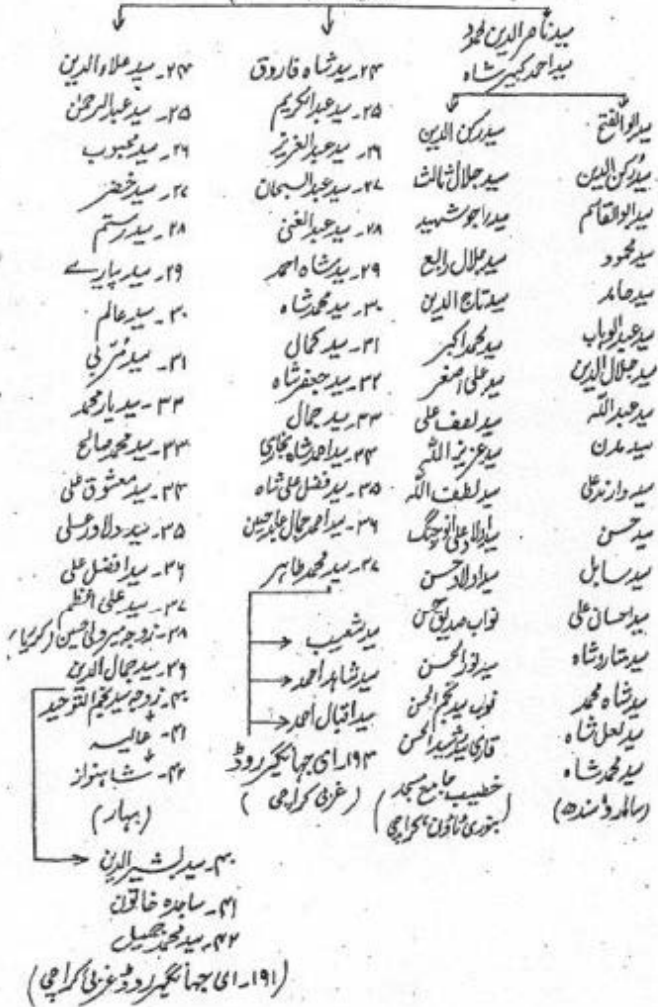 سید ناصر الدین محمود
سید احمد کبیر شاہ
سید ابو الفتح
سید رکن الدین
سید ابوالقاسم
سید محمود
سید حامد
سید عبدالوہاب
سید جلال الدین
سید عبداللہ
سید مدن
سید وارند علی
سید حسن
سید سابل
سید احسان علی
سید ستار شاہ
سید شاہ محمد
سید لعل شاہ
سید محمد شاہ
سید رکن الدین
سید جلال ثالث
سید راجو شہید
سید جلال رابع
سید تاج الدین
سید محمد اکبر
سید علی اصغر
سید لطف علی
سید عزیز اللہ
سید لطف اللہ
سید اولاد علی انور جنگ
سید اولاد حسن
نواب صدیق حسن
سید نور الحسن
نواب سید نجم الحسن
قاری سید رشید الحسن
خطیب جامع مسجد
(بنوری ٹاؤن، کراچی)
۲۴۔ سید شاہ فاروق
۲۵۔ سید عبدالکریم
۲۶۔ سید عبدالعزیز
۲۷۔ سید عبدالسبحان
۲۸۔ سید عبدالغنی
۲۹۔ سید شاہ احمد
۳۰۔ سید محمد شاہ
۳۱۔ سید کمال
۳۲۔ سید جعفر شاہ
۳۳۔ سید جمال
۳۴۔ سید احمد شاہ بخاری
۳۵۔ سید فضل علی شاہ
۳۶۔ سید احمد جمال عابد حسین
۳۷۔ سید محمد طاہر
سید شعیب
سید شاہد احمد
سید اقبال احمد
۱۹۳۔ ای جہانگیر روڈ
(غربی کراچی)
۲۴۔ سید علاء الدین
۲۵۔ سید عبدالرحمٰن
۲۶۔ سید محبوب
۲۷۔ سید خضر
۲۸۔ سید رستم
۲۹۔ سید پیارے
۳۰۔ سید عالم
۳۱۔ سید مُربّی
۳۲۔ سید یار محمد
۳۳۔ سید محمد صالح
۳۴۔ سید معشوق علی
۳۵۔ سید دلاور علی
۳۶۔ سید افضل علی
۳۷۔ سید علی اعظم
۳۸۔ زوجہ میر ولی حسین (کریا)
۳۹۔ سید جمال الدین
۴۰۔ زوجہ سید نجم التوحید
۴۱۔ عالیہ
۴۲۔ شاہنواز
(بہار)
۴۰۔ سید بشیر الدین
۴۱۔ ساجدہ خاتون
۴۲۔ سید محمد جمیل
(۱۹۱۔ ای جہانگیر روڈ غربی کراچی)